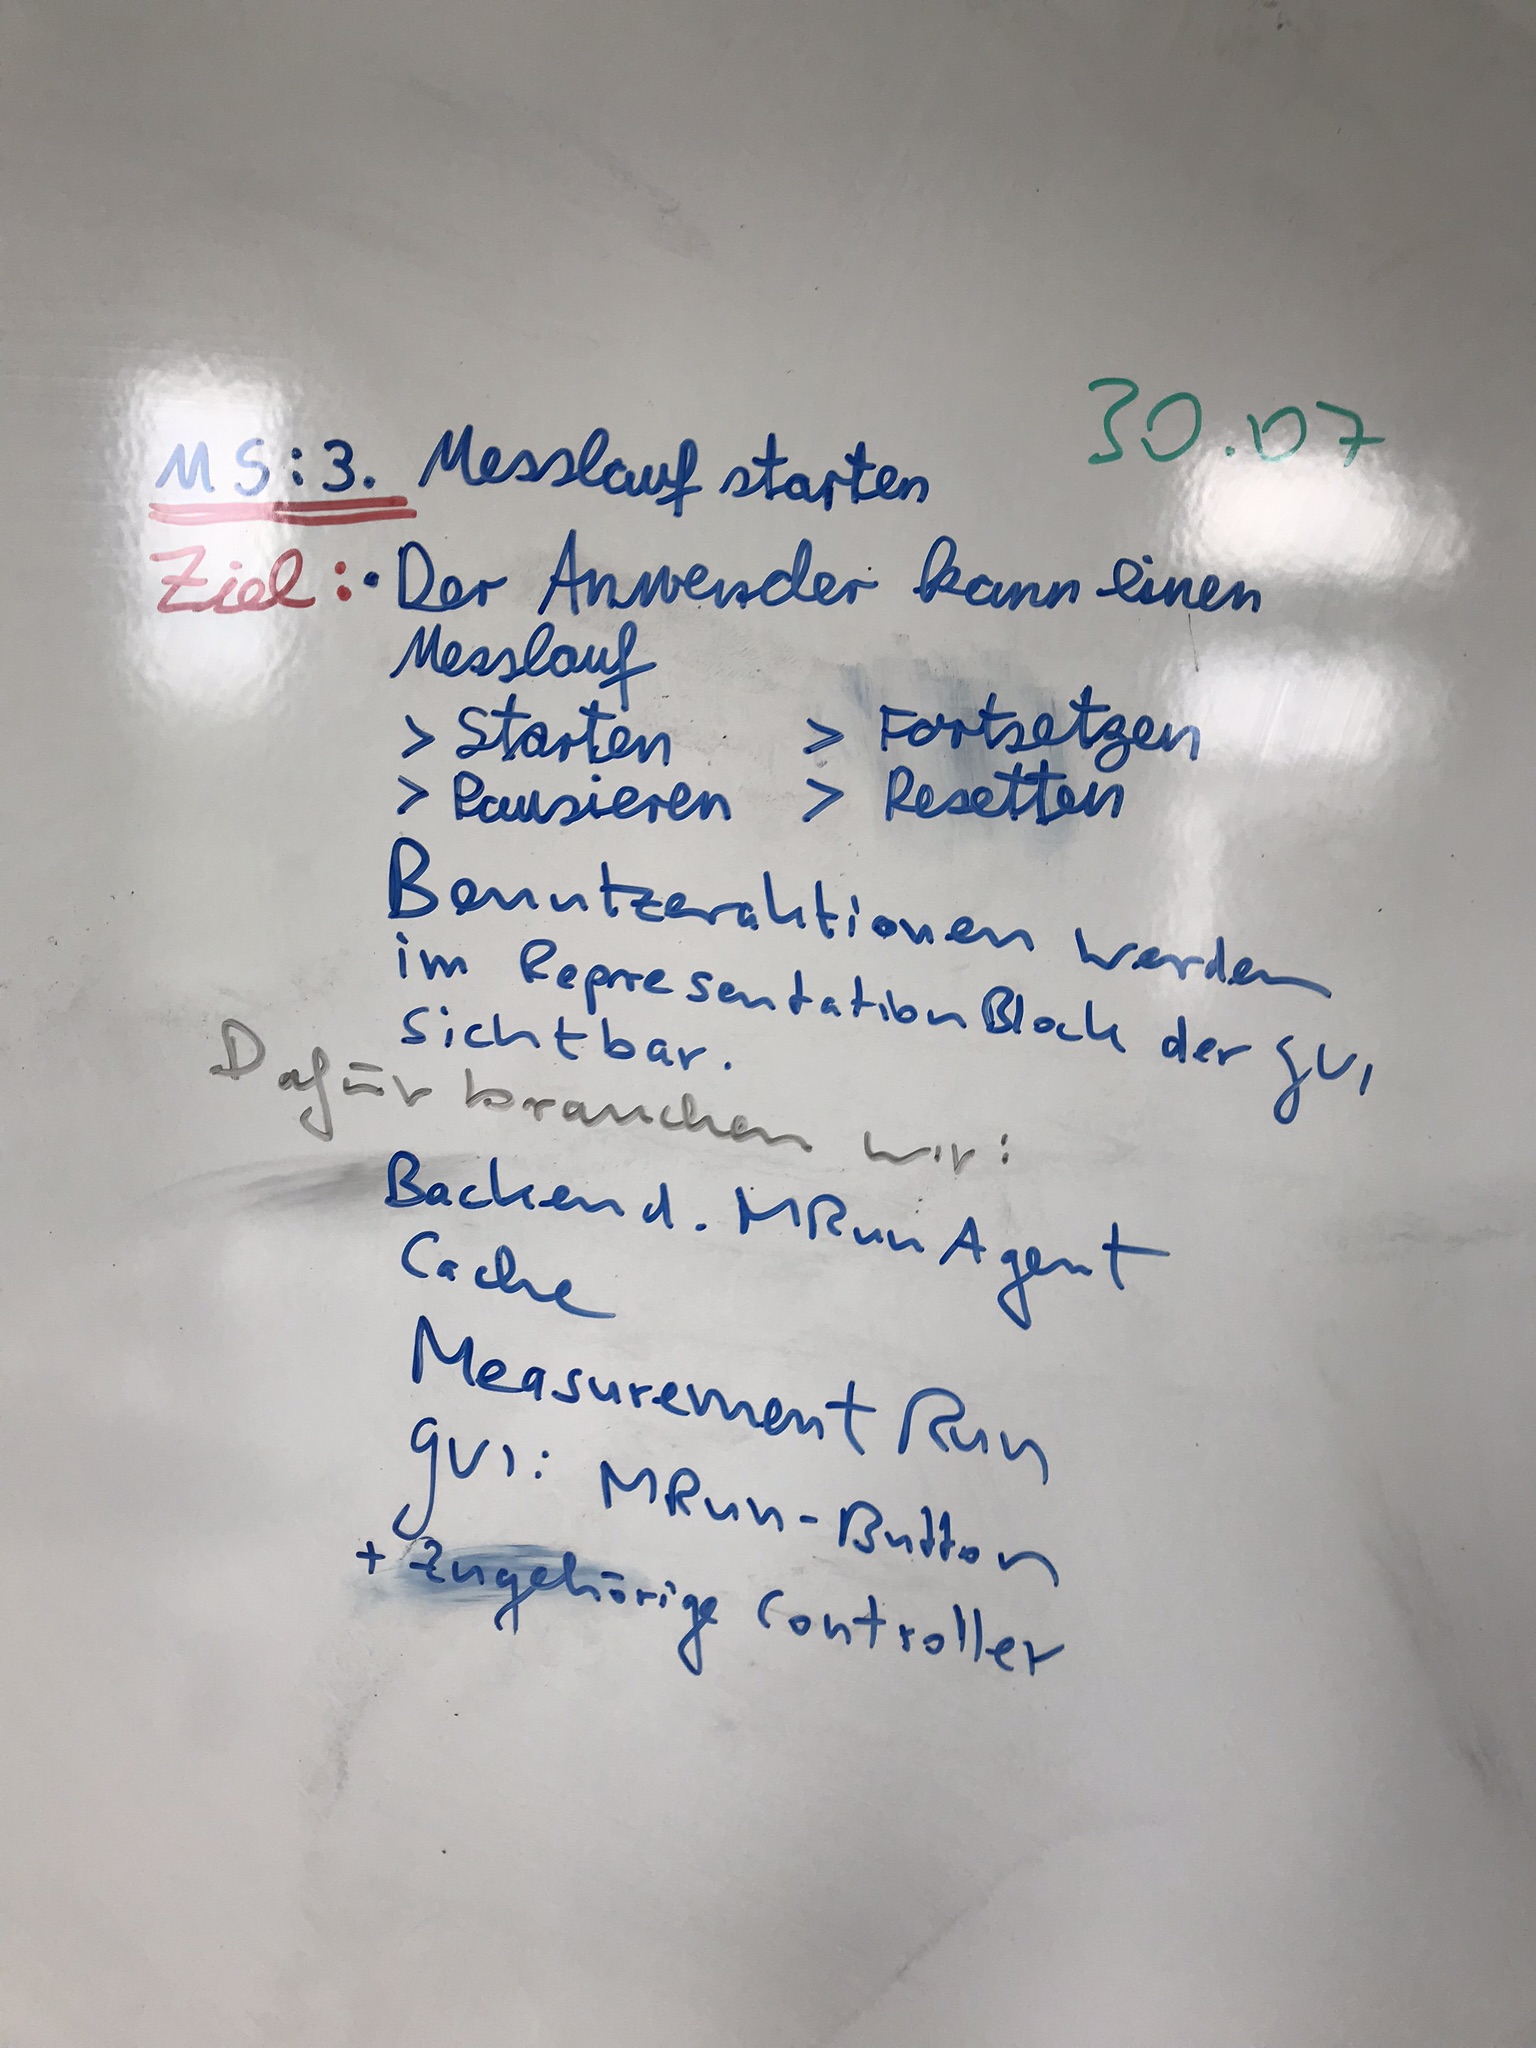 30.07
MS:3. Messlauf starten
Ziel:• Der Anwender kann einen
Messlauf
> Starten > Fortsetzen
> Pausieren > Resetten
Benutzeraktionen werden
im RepresentationBlock der GUI
sichtbar.
Dafür brauchen wir:
Backend. MRunAgent
Cache
Measurement Run
GUI: MRun-Button
+ Zugehörige Controller